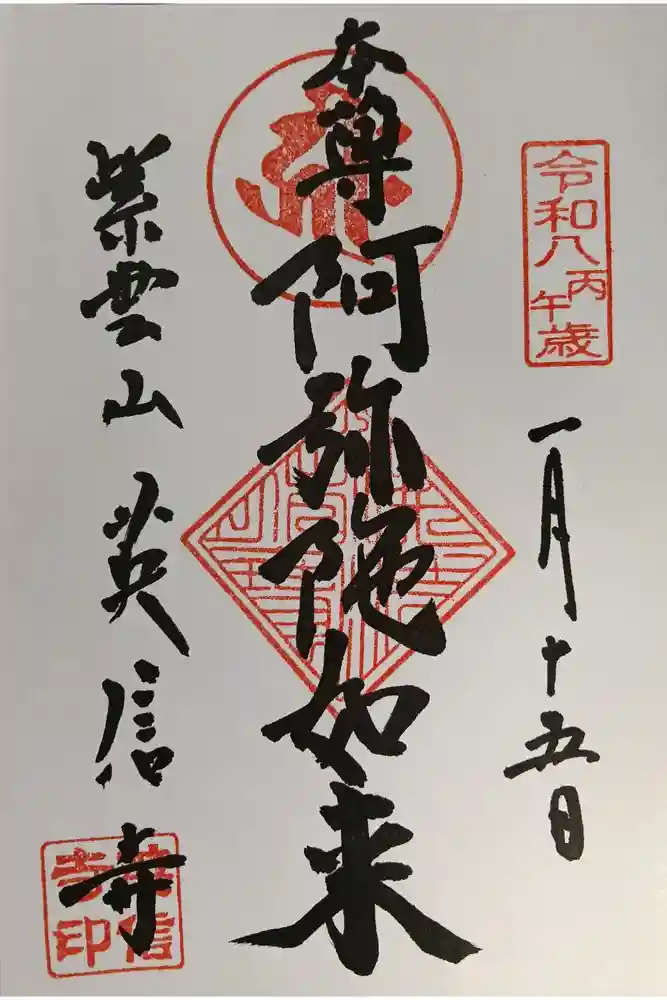 令和八丙午歳
一月十五日
本尊
阿弥陀如来
紫雲山 英信寺
英信寺印